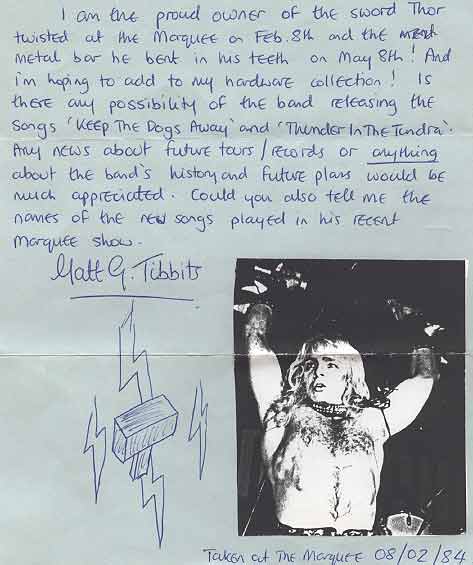 I am the proud owner of the sword Thor
twisted at the Marquee on Feb. 8th and the
metal bar he bent in his teeth on May 8th! And
i'm hoping to add to my hardware collection! Is
there any possibility of the band releasing the
songs 'KEEP The Dogs Away' and 'Thunder In The Tundra'.
Any news about future tours/records or anything
about the band's history and future plans would be
much appreciated. Could you also tell me the
names of the new songs played in his recent
Marquee show.
Matt G. Tibbits
Taken at The Marquee 08/02/84